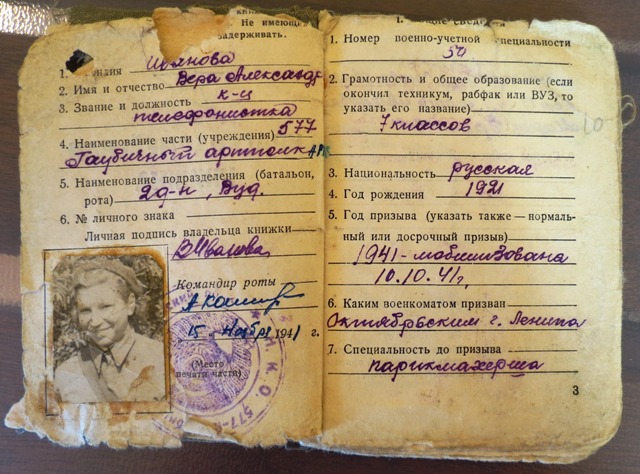 Не имеющих
задерживать.
Иванова
1. Фамилия
2. Имя и отчество Вера Александр
3. Звание и должность к-ц
телефонистка
4. Наименование части (учреждения) 577
Гаубичный артполк
5. Наименование подразделения (батальон,
рота) 2 д-н, взд.
6. № личного знака
Личная подпись владельца книжки
ВИванова
Командир роты
15 ноября 1941 г.
(Место
печати части)
Н. К. О. 577-
I. Общие сведения
1. Номер военно-учетной специальности
50
2. Грамотность и общее образование (если
окончил техникум, рабфак или ВУЗ, то
указать его название)
7 классов
10
3. Национальность русская
4. Год рождения 1921
5. Год призыва (указать также — нормаль-
ный или досрочный призыв)
1941 - мобилизована
10.10.41г.
6. Каким военкоматом призван
Октябрьским г. Ленинг
7. Специальность до призыва
парикмахерша
3